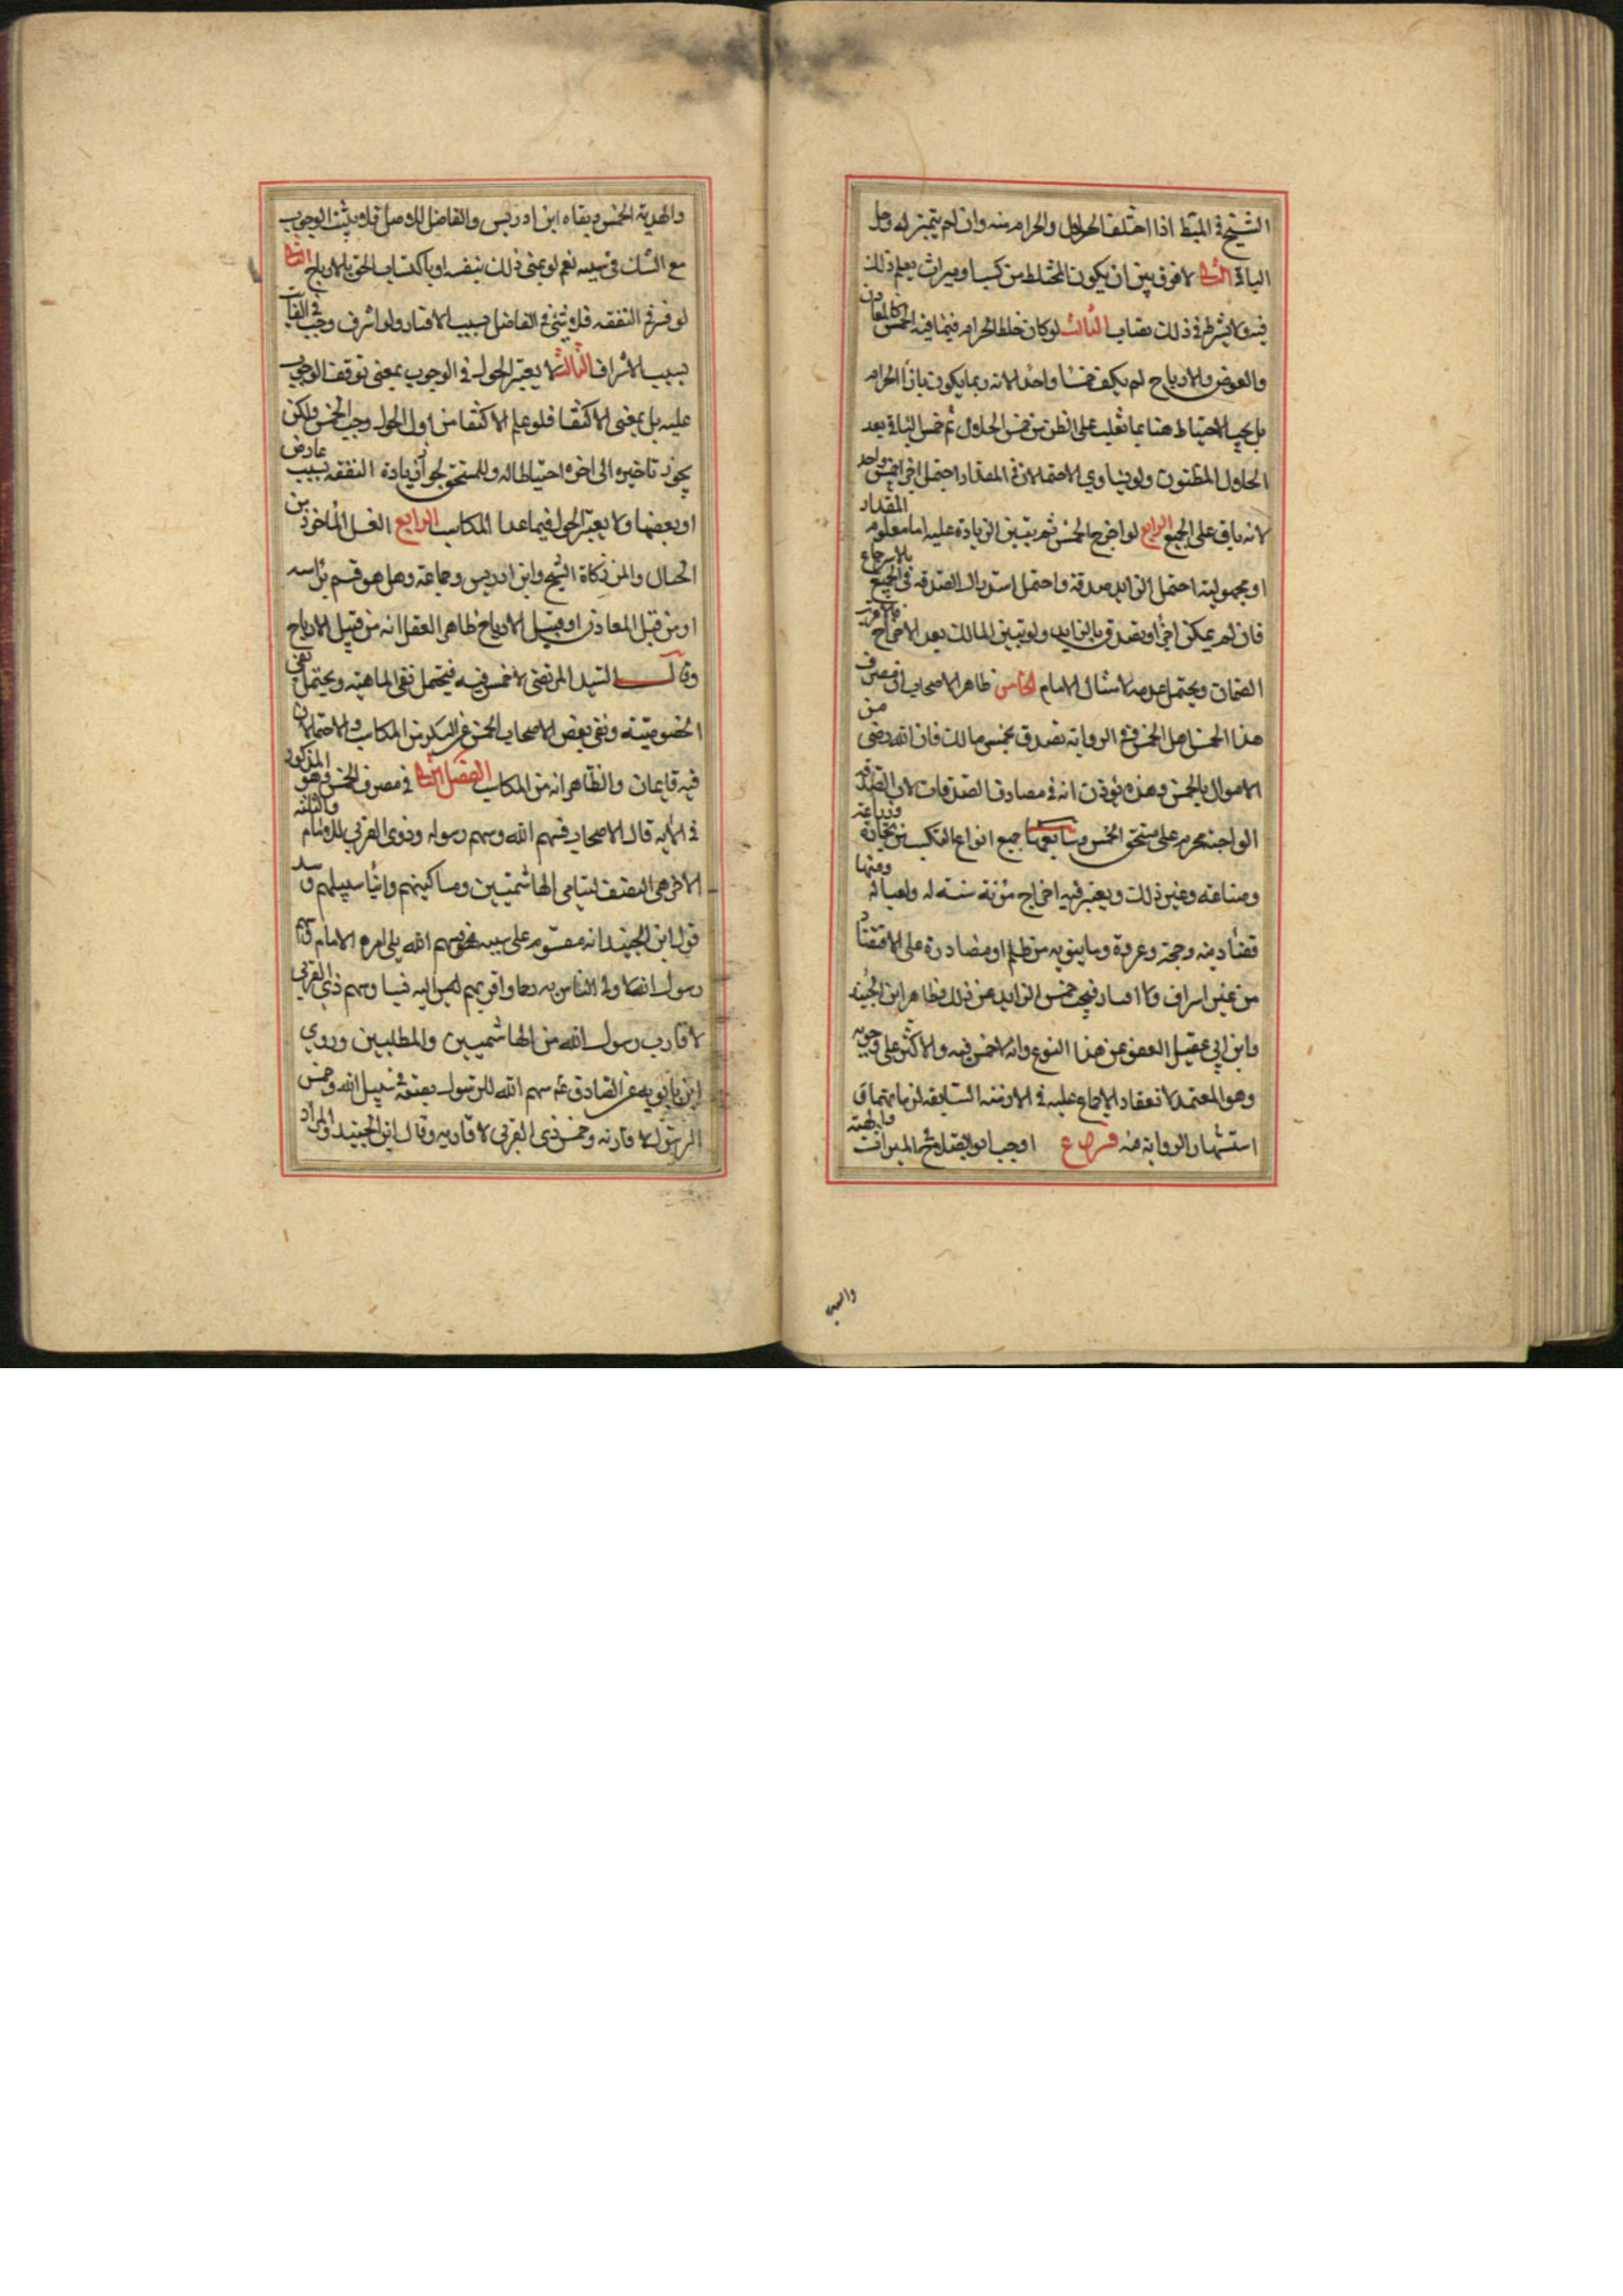 الشيخ في المبسط اذا اختلط الحلال والحرام منه وان لم يتميز له وحل
الباقي الثاني لا فرق بين ان يكون المختلط من كسب او ميراث يعلم ذلك
فيه ولا يشترط في ذلك نصاب الثالث لو كان خلط الحرام فيما فيه الخمس كالمعادن
والغوص والارباح لم يكف خمسا واحدا لانه ربما يكون بازاء الحرام
بل يجب الاحتياط هنا بما تغلب على الظن من خمس الحلال ثم خمس الباقي بعد
الحلال المظنون ولو تساوي الاحتمالان في المقدار احتمل اجزاء خمس واحد
لانه باق على الجميع الرابع لو اخرج الخمس ثم تبين الزيادة عليه اما معلوم المقدار
او مجهوليته احتمل الزايد صدقة واحتمل استدراك الصدقة في الجميع بالاسترجاع
فان لم يمكن اجزأ وتصدق بالزايد ولو تبين المالك بعد الاخراج فالاقرب
الضمان ويحتمل عدمه لامتثال الامام الخامس ظاهر الاصحاب ان مصرف
هذا الخمس اهل الخمس وفي الرواية تصدق بخمس مالك فان الله رضي من
الاموال بالخمس وهذه تؤذن انه في مصارف الصدقات لان الصدقة
الواجبة محرم على مستحق الخمس وسابعها جميع انواع التكسب من تجارة وزراعة
وصناعته وغير ذلك ويعتبر فيه اخراج مؤنة سنة له ولعياله ومنها
قضاء دينه وحجه وغزوه وما ينوبه من ظلم او مصادرة على الاقتصاد
من غير اسراف ولا اقتار فيجب خمس الزايد عن ذلك وظاهر ابن الجنيد
وابن ابي عقيل العفو عن هذا النوع وانه لا خمس فيه والاكثر على وجوبه
وهو المعتمد لانعقاد الاجماع عليه في الازمنة السابقة لزمانهما في
استشهار الرواية فيه فروع اوجب ابو الصلاح في الميراث والهبة
والهدية
والهدية الخمس ونفاه ابن ادريس والفاضل للاصل فلا يثبت الوجوب
مع الشك في سببه نعم لو نمى ذلك بنفسه او باكتساب الحق بالارباح الثاني
لو قتر في النفقة فلا شئ في الفاضل بسبب الاقتار ولو اسرف وجب في الفايت
بسبب الاسراف الثالث لا يعتبر الحول في الوجوب بمعنى توقف الوجوب
عليه بل بمعنى الاكتفا فلو علم الاكتفا من اول الحول وجب الخمس ولكن
يجوز تاخيره الى اخره احتياطا له وللمستحق لجواز زيادة النفقة بسبب عارض
او نقصها ولا يعتبر الحول فيما عدا المكاسب الرابع العسل الماخوذ من
الجبال والمن ذكره الشيخ وابن ادريس وجماعة وهل هو قسم براسه
او من قبيل المعادن او من قبيل الارباح ظاهر العقل انه من قبيل الارباح
وقال السيد المرتضى لا خمس فيه فيحتمل نفي الماهية ويحتمل نفي
الخصوصية ونفى بعض الاصحاب الخمس عن السكر من المكاسب والاحتمالان
فيه قايمان والظاهر انه من المكاسب الفصل الثاني في مصرف الخمس وهو المذكور
في الاية قال الاصحاب فسهم الله وسهم رسوله وذوي القربى للامام والثلثة
الاخرى النصف ليتامى الهاشميين ومساكينهم وابناء سبيلهم و
قول ابن الجنيد انه مقسوم على ستة فسهم الله يلي امره الامام وسهم
رسول الله لاولى الناس به رحما واقربهم اليه نسبا وسهم ذي القربى
لاقارب رسول الله من الهاشميين والمطلبيين وروي
ابن بابويه عن الصادق سهم الله للرسول يصنعه في سبيل الله وخمس
الرسول لاقاربه وخمس ذي القربى لاقاربه وقال ابن الجنيد والمراد